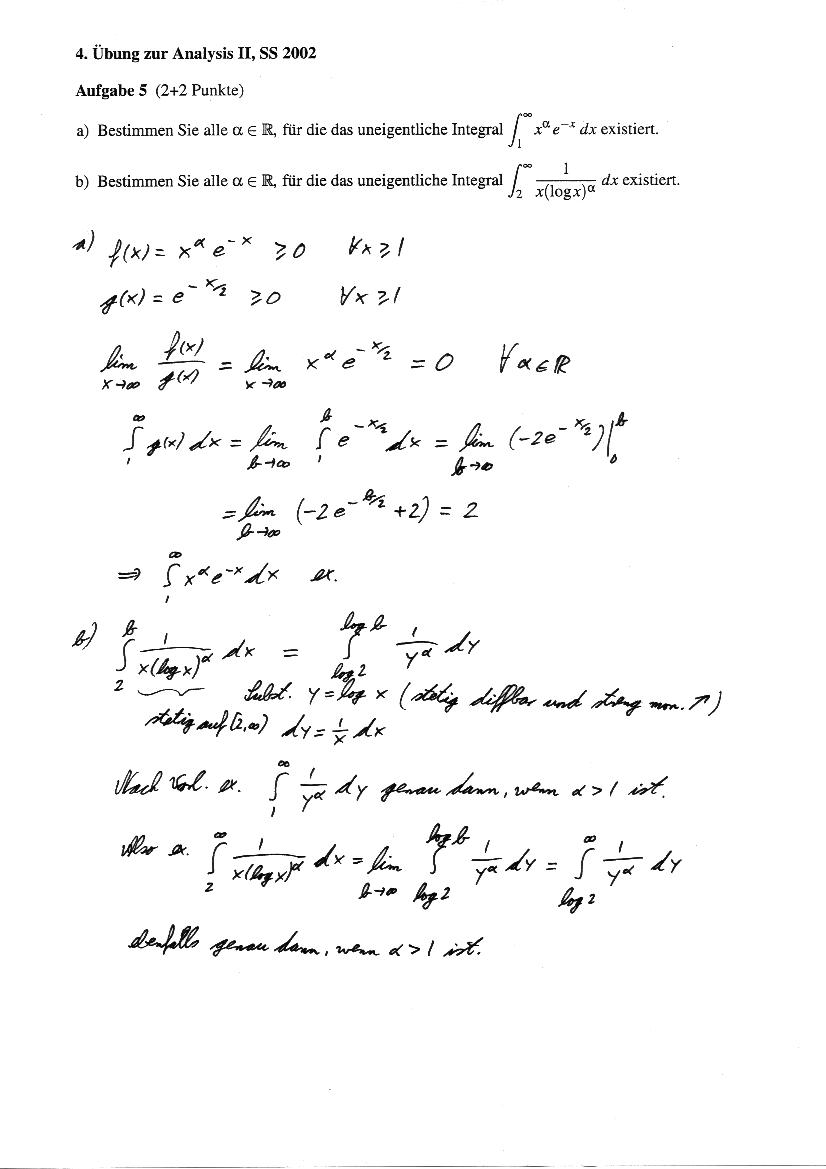 4. Übung zur Analysis II, SS 2002
Aufgabe 5 (2+2 Punkte)
a) Bestimmen Sie alle α ∈ ℝ, für die das uneigentliche Integral ∫_1^∞ x^α e^{-x} dx existiert.
b) Bestimmen Sie alle α ∈ ℝ, für die das uneigentliche Integral ∫_2^∞ 1/(x(log x)^α) dx existiert.
a) f(x) = x^α e^{-x} ≥ 0 ∀x ≥ 1
g(x) = e^{-x/2} ≥ 0 ∀x ≥ 1
lim_{x→∞} f(x)/g(x) = lim_{x→∞} x^α e^{-x/2} = 0 ∀α∈ℝ
∫_1^∞ g(x) dx = lim_{b→∞} ∫_1^b e^{-x/2} dx = lim_{b→∞} (-2e^{-x/2})|_0^b
= lim_{b→∞} (-2e^{-b/2} + 2) = 2
⇒ ∫_1^∞ x^α e^{-x} dx ex.
b) ∫_2^b 1/(x(log x)^α) dx = ∫_{log 2}^{log b} 1/y^α dy
Subst. y = log x (stetig diffbar und streng mon. ↗)
stetig auf [2,∞) dy = 1/x dx
Nach Vorl. ex. ∫_1^∞ 1/y^α dy genau dann, wenn α > 1 ist.
Also ex. ∫_2^∞ 1/(x(log x)^α) dx = lim_{b→∞} ∫_{log 2}^{log b} 1/y^α dy = ∫_{log 2}^∞ 1/y^α dy
ebenfalls genau dann, wenn α > 1 ist.